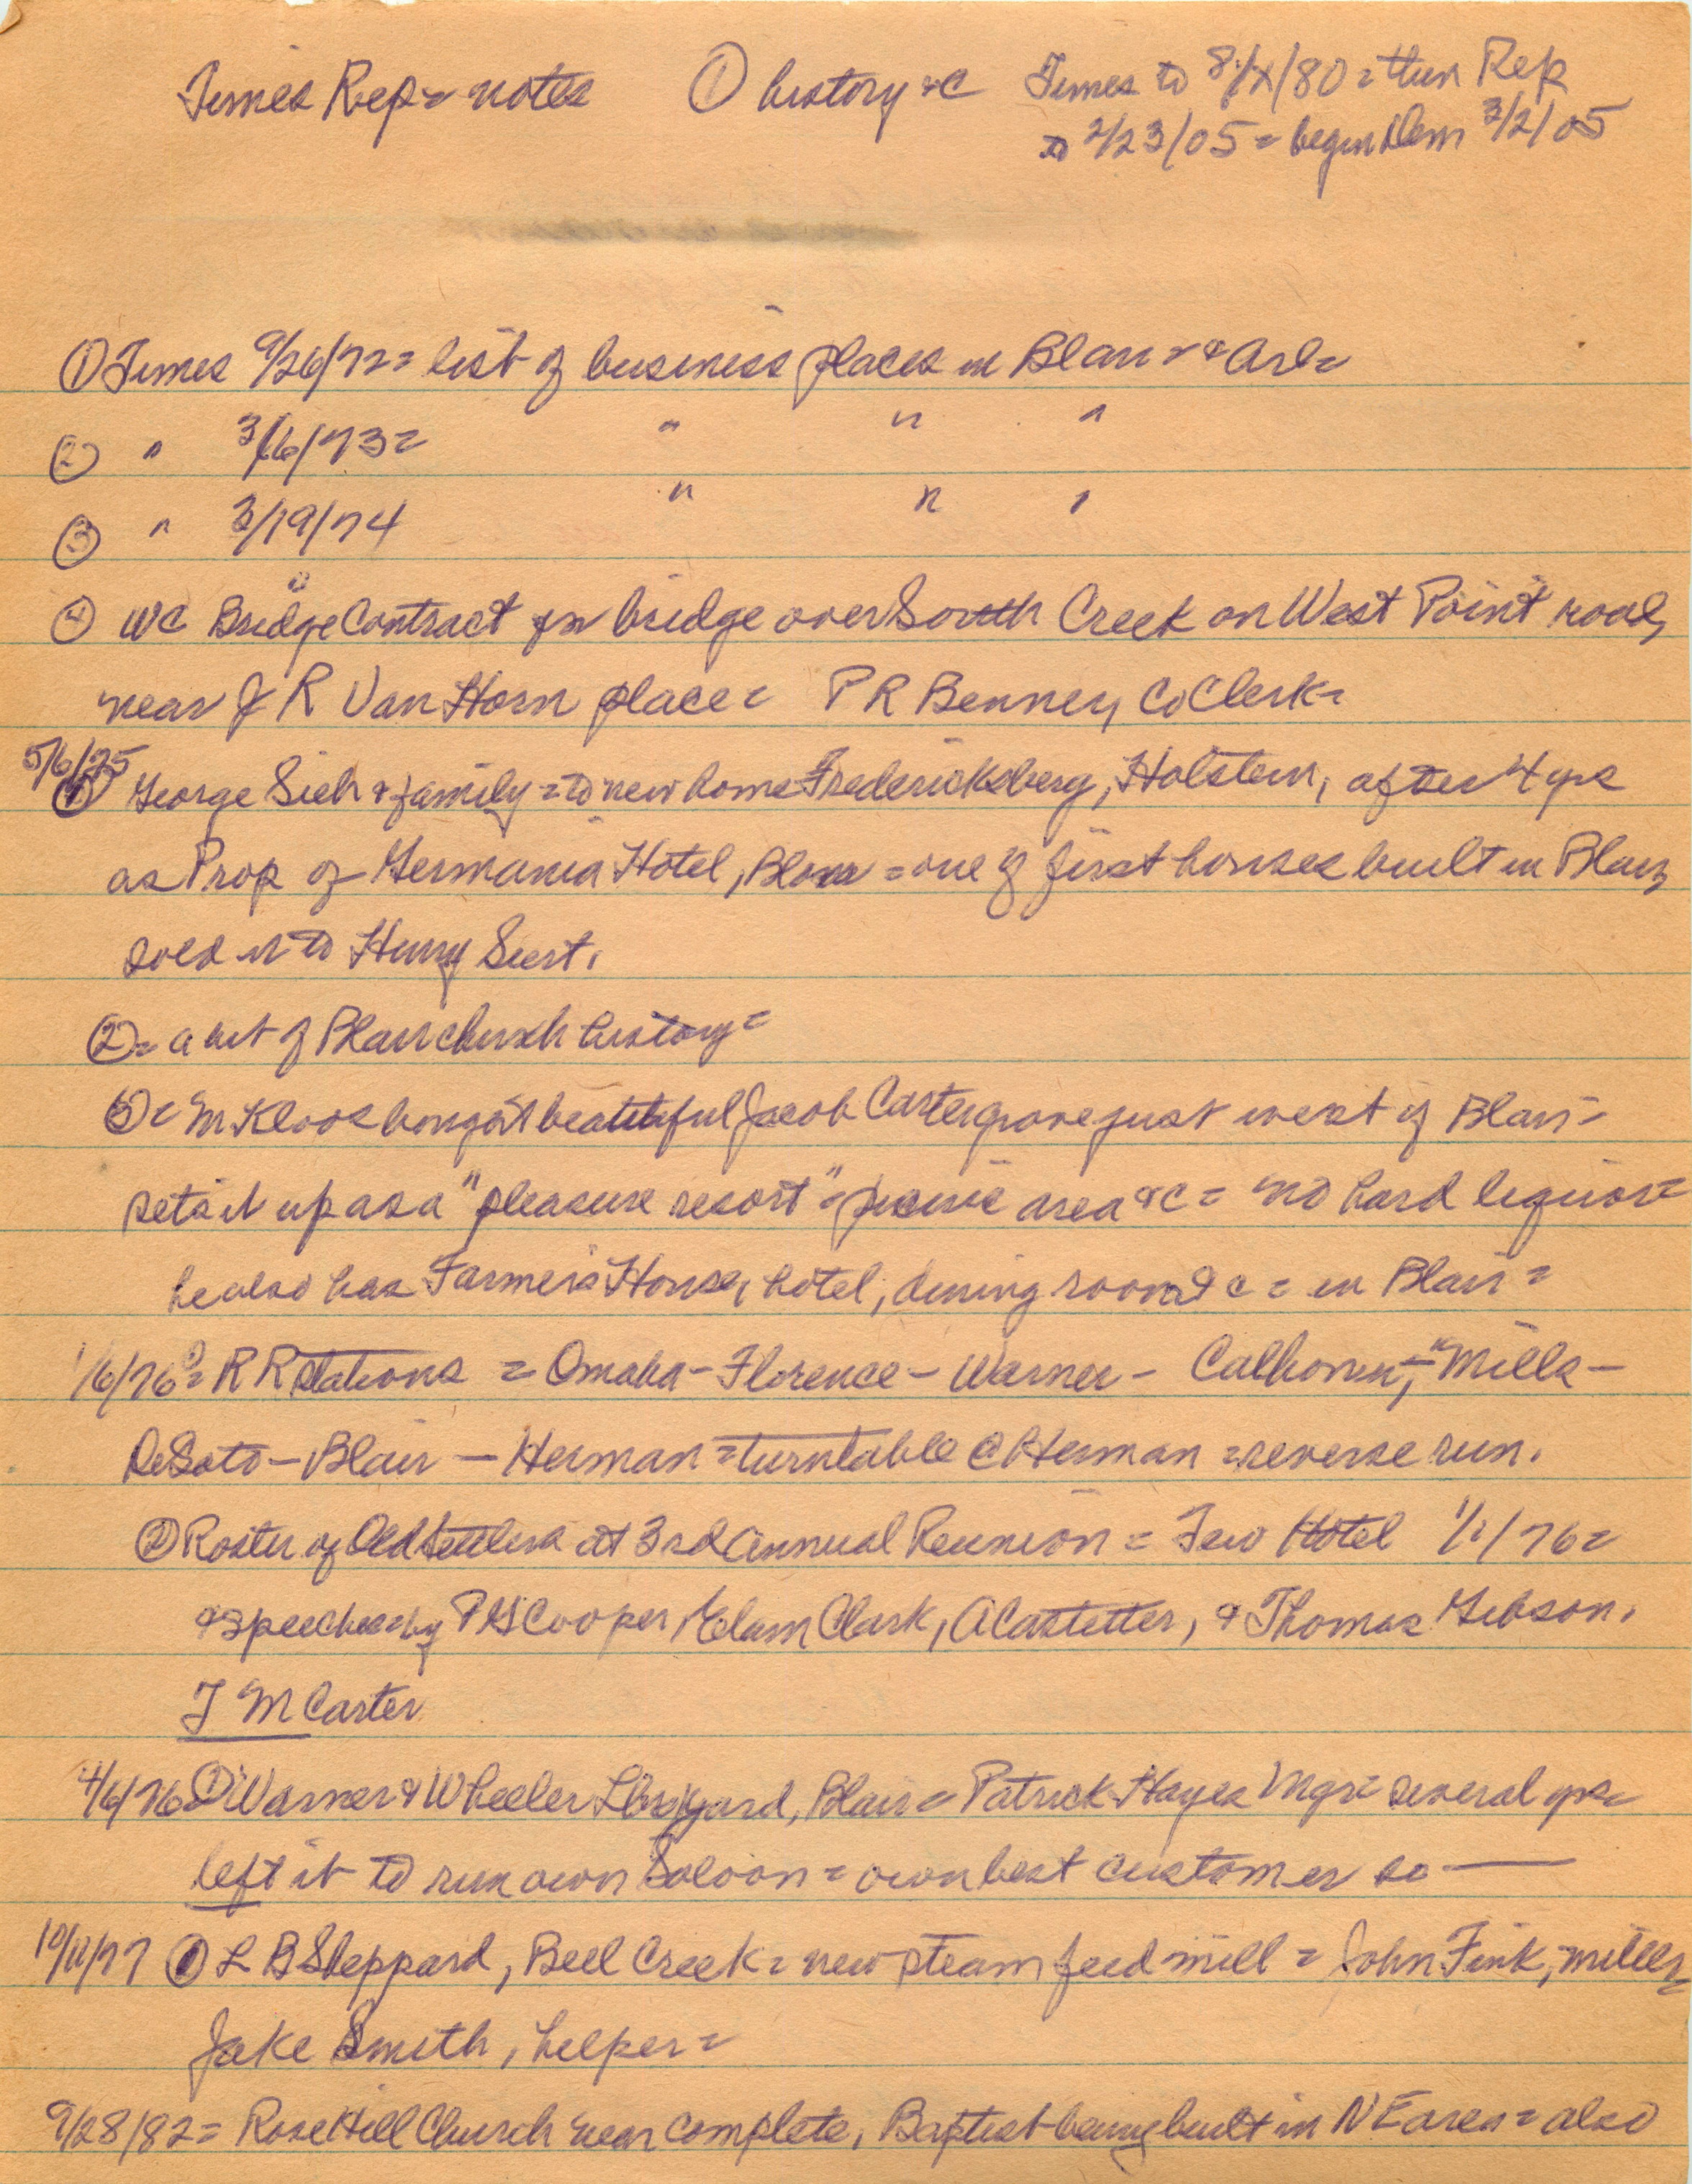 Times Rep = notes ① history &c Times to 8/ /80 = then Rep
to 2/23/05 = begin Dem 3/2/05
① Times 9/26/72 = list of business places in Blair = & Arl =
② " 3/6/73 = " " "
③ " 3/19/74 " " "
④ WC Bridge Contract for bridge over South Creek on West Point road,
near J R Van Horn place = P R Benney, Co Clerk =
5/6/75 ① George Sieh & family = to new home Fredericksberg, Holstein, after 4 yrs
as Prop of Germania Hotel, Blair = one of first houses built in Blair,
sold it to Henry
② = a bit of Blair church history =
③ = M Kloos bought beautiful Jacob Carter grove just west of Blair =
sets it up as a "pleasure resort" = picnic area &c = no hard liquor =
he also has Farmers House, hotel, dining room & c = in Blair =
1/6/76 = R R stations = Omaha - Florence - Warner - Calhoun, - Mills -
DeSoto - Blair - Herman = turntable @ Herman = reverse run.
② Roster of Old Settlers at 3rd Annual Reunion = Hotel 1/1/76 =
& speeches by P G Cooper, Elam Clark, A Castetter, & Thomas Gibson.
T M Carter
4/6/76 ① Warner & Wheeler Lbr yard, Blair = Patrick Hayes Mgr = several yrs =
left it to run own Saloon = own best customer so —
10/11/77 ① L B Sheppard, Bell Creek = new steam feed mill = John Fink, miller =
Jake Smith, helper =
9/28/82 = Rose Hill Church near complete, Baptist being built in N E area = also